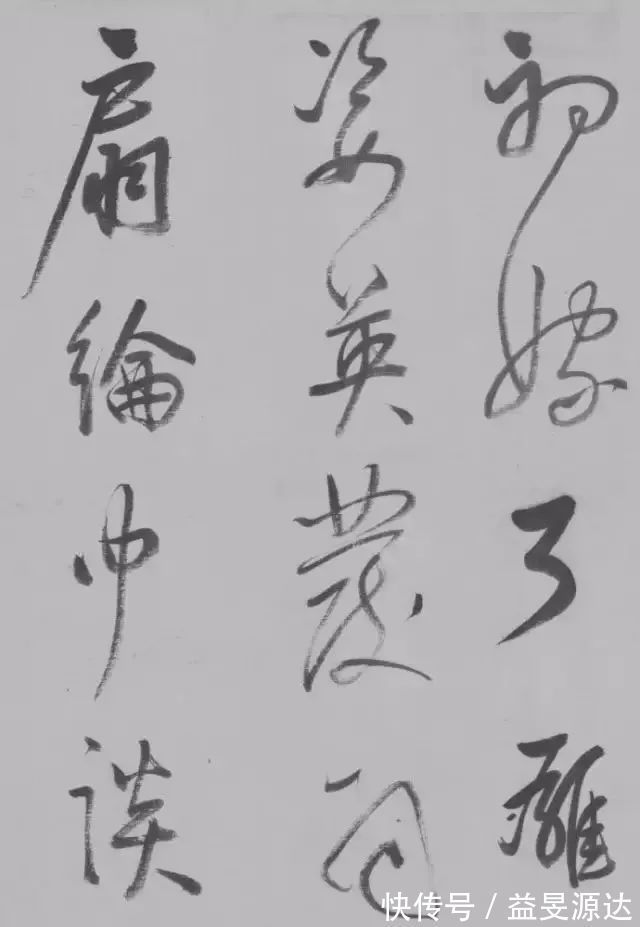 初嫁了雄
姿英發羽
扇綸巾談
快传号 / 益旻源达